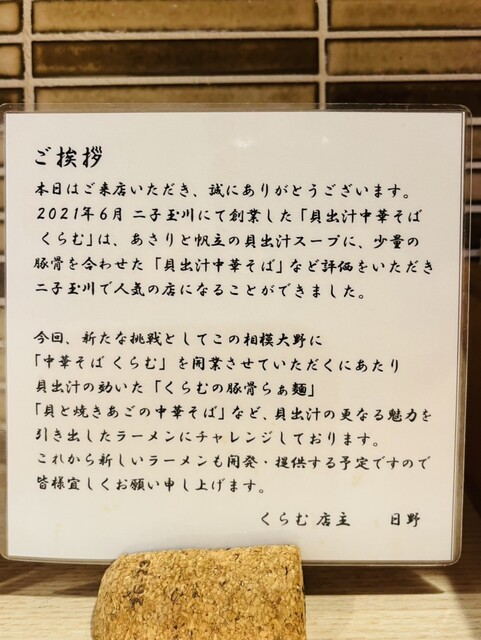 ご挨拶
本日はご来店いただき、誠にありがとうございます。
2021年6月 二子玉川にて創業した「貝出汁中華そば
くらむ」は、あさりと帆立の貝出汁スープに、少量の
豚骨を合わせた「貝出汁中華そば」など評価をいただき
二子玉川で人気の店になることができました。
今回、新たな挑戦としてこの相模大野に
「中華そば くらむ」を開業させていただくにあたり
貝出汁の効いた「くらむの豚骨らぁ麺」
「貝と焼きあごの中華そば」など、貝出汁の更なる魅力を
引き出したラーメンにチャレンジしております。
これから新しいラーメンも開発・提供する予定ですので
皆様宜しくお願い申し上げます。
くらむ 店主 日野